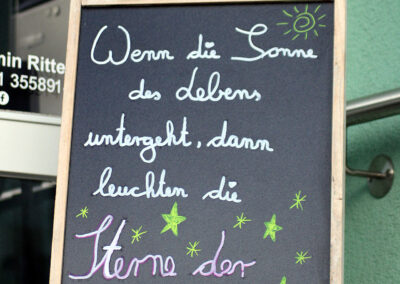 min Ritte
1 355891
Wenn die Sonne
des Lebens
untergeht, dann
leuchten die
Sterne der